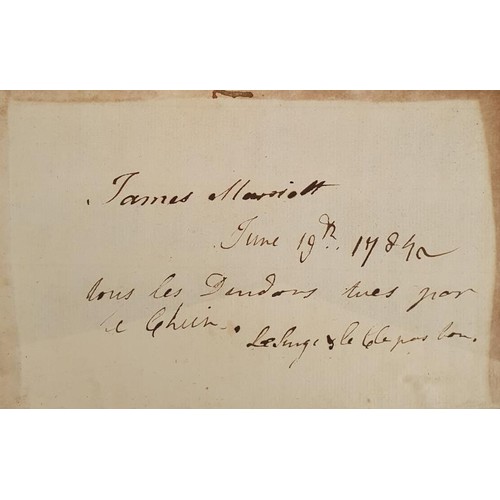 James Marriott
June 19th. 1784
tous les Dindons tues par
le Chien.
Le Singe & le